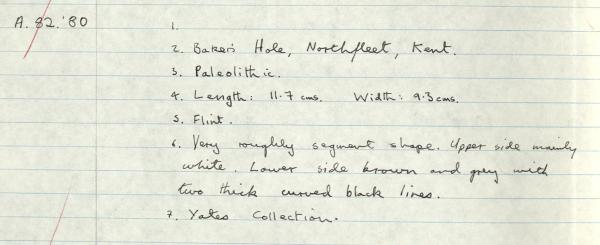 A. 82.'80
1.
2. Baker's Hole, Northfleet, Kent.
3. Paleolithic.
4. Length: 11.7 cms. Width: 9.3 cms.
5. Flint.
6. Very roughly segment shape. Upper side mainly
white. Lower side brown and grey with
two thick curved black lines.
7. Yates Collection.